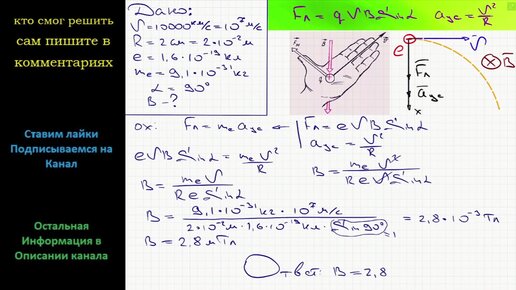 кто смог решить
сам пишите в
комментариях
Ставим лайки
Подписываемся на
Канал
Остальная
Информация в
Описании канала
Дано:
V=10000км/с=10⁷м/с
R=2см=2·10⁻²м
e=1,6·10⁻¹⁹кл
mₑ=9,1·10⁻³¹кг
α=90°
B-?
Fл=qVBsinα aцс=V²/R
e V B
Fл
aцс
x
ox: Fл=mₑaцс ← Fл=eVBsinα
aцс=V²/R
eVBsinα=mₑV²/R B=mₑV²/ReVsinα
B=mₑV/Resinα
B=9,1·10⁻³¹кг·10⁷м/с/2·10⁻²м·1,6·10⁻¹⁹кл·sin90° 1 =2,8·10⁻³Тл
B=2,8мТл
Ответ: B=2,8